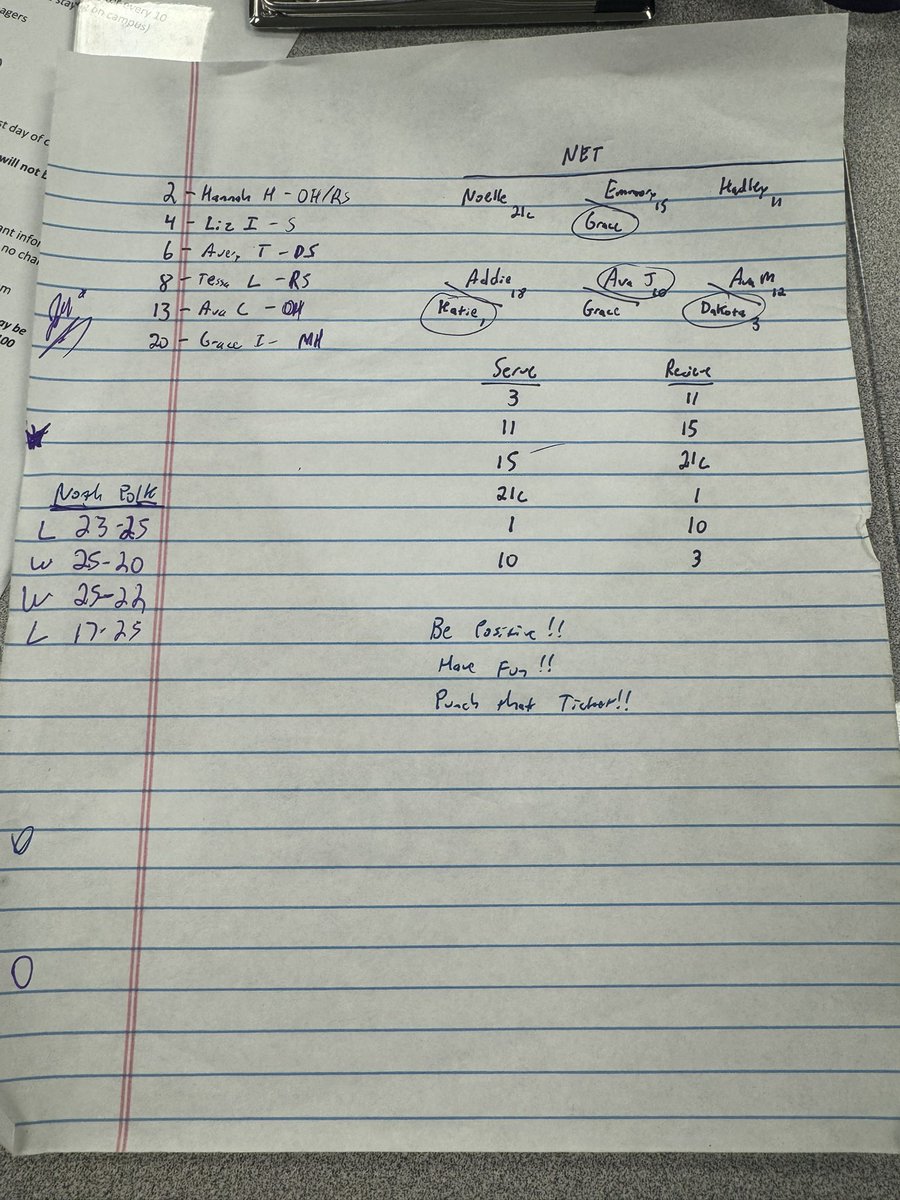 every 10
agers
on campus)
st day of c
will not b
ant infor
no cha
m
ay be
00
NET
2 - Hannah H - OH/RS
4 - Liz I - S
6 - Avery T - DS
8 - Tessa L - RS
13 - Ava C - OH
20 - Grace I - MH
Noelle 21c Emmory 15 Hadley 11
Grace
Addie 18 Ava J 10 Ava M 12
Katie 1 Grace Dakota 3
Serve Recieve
3 11
11 15
15 21c
21c 1
1 10
10 3
North Polk
L 23-25
W 25-20
W 25-22
L 17-25
Be Positive!!
Have Fun!!
Punch that Ticket!!